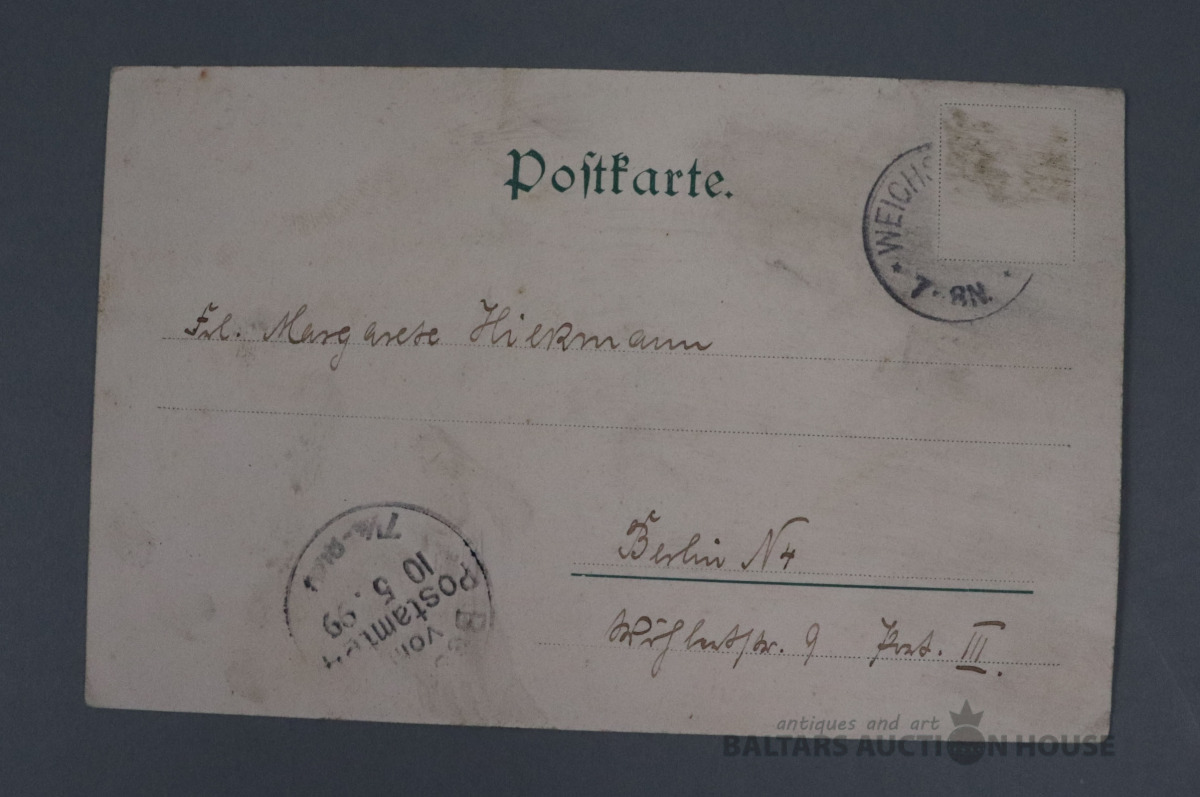 Postkarte.
* WEICHS
7-8N.
Frl. Margarete Hilkmann
Berlin N4
Wöhlertstr. 9 Prt. III.
vom
Postamt
10 5. 99
7½-8
antiques and art
BALTARS AUCTION HOUSE